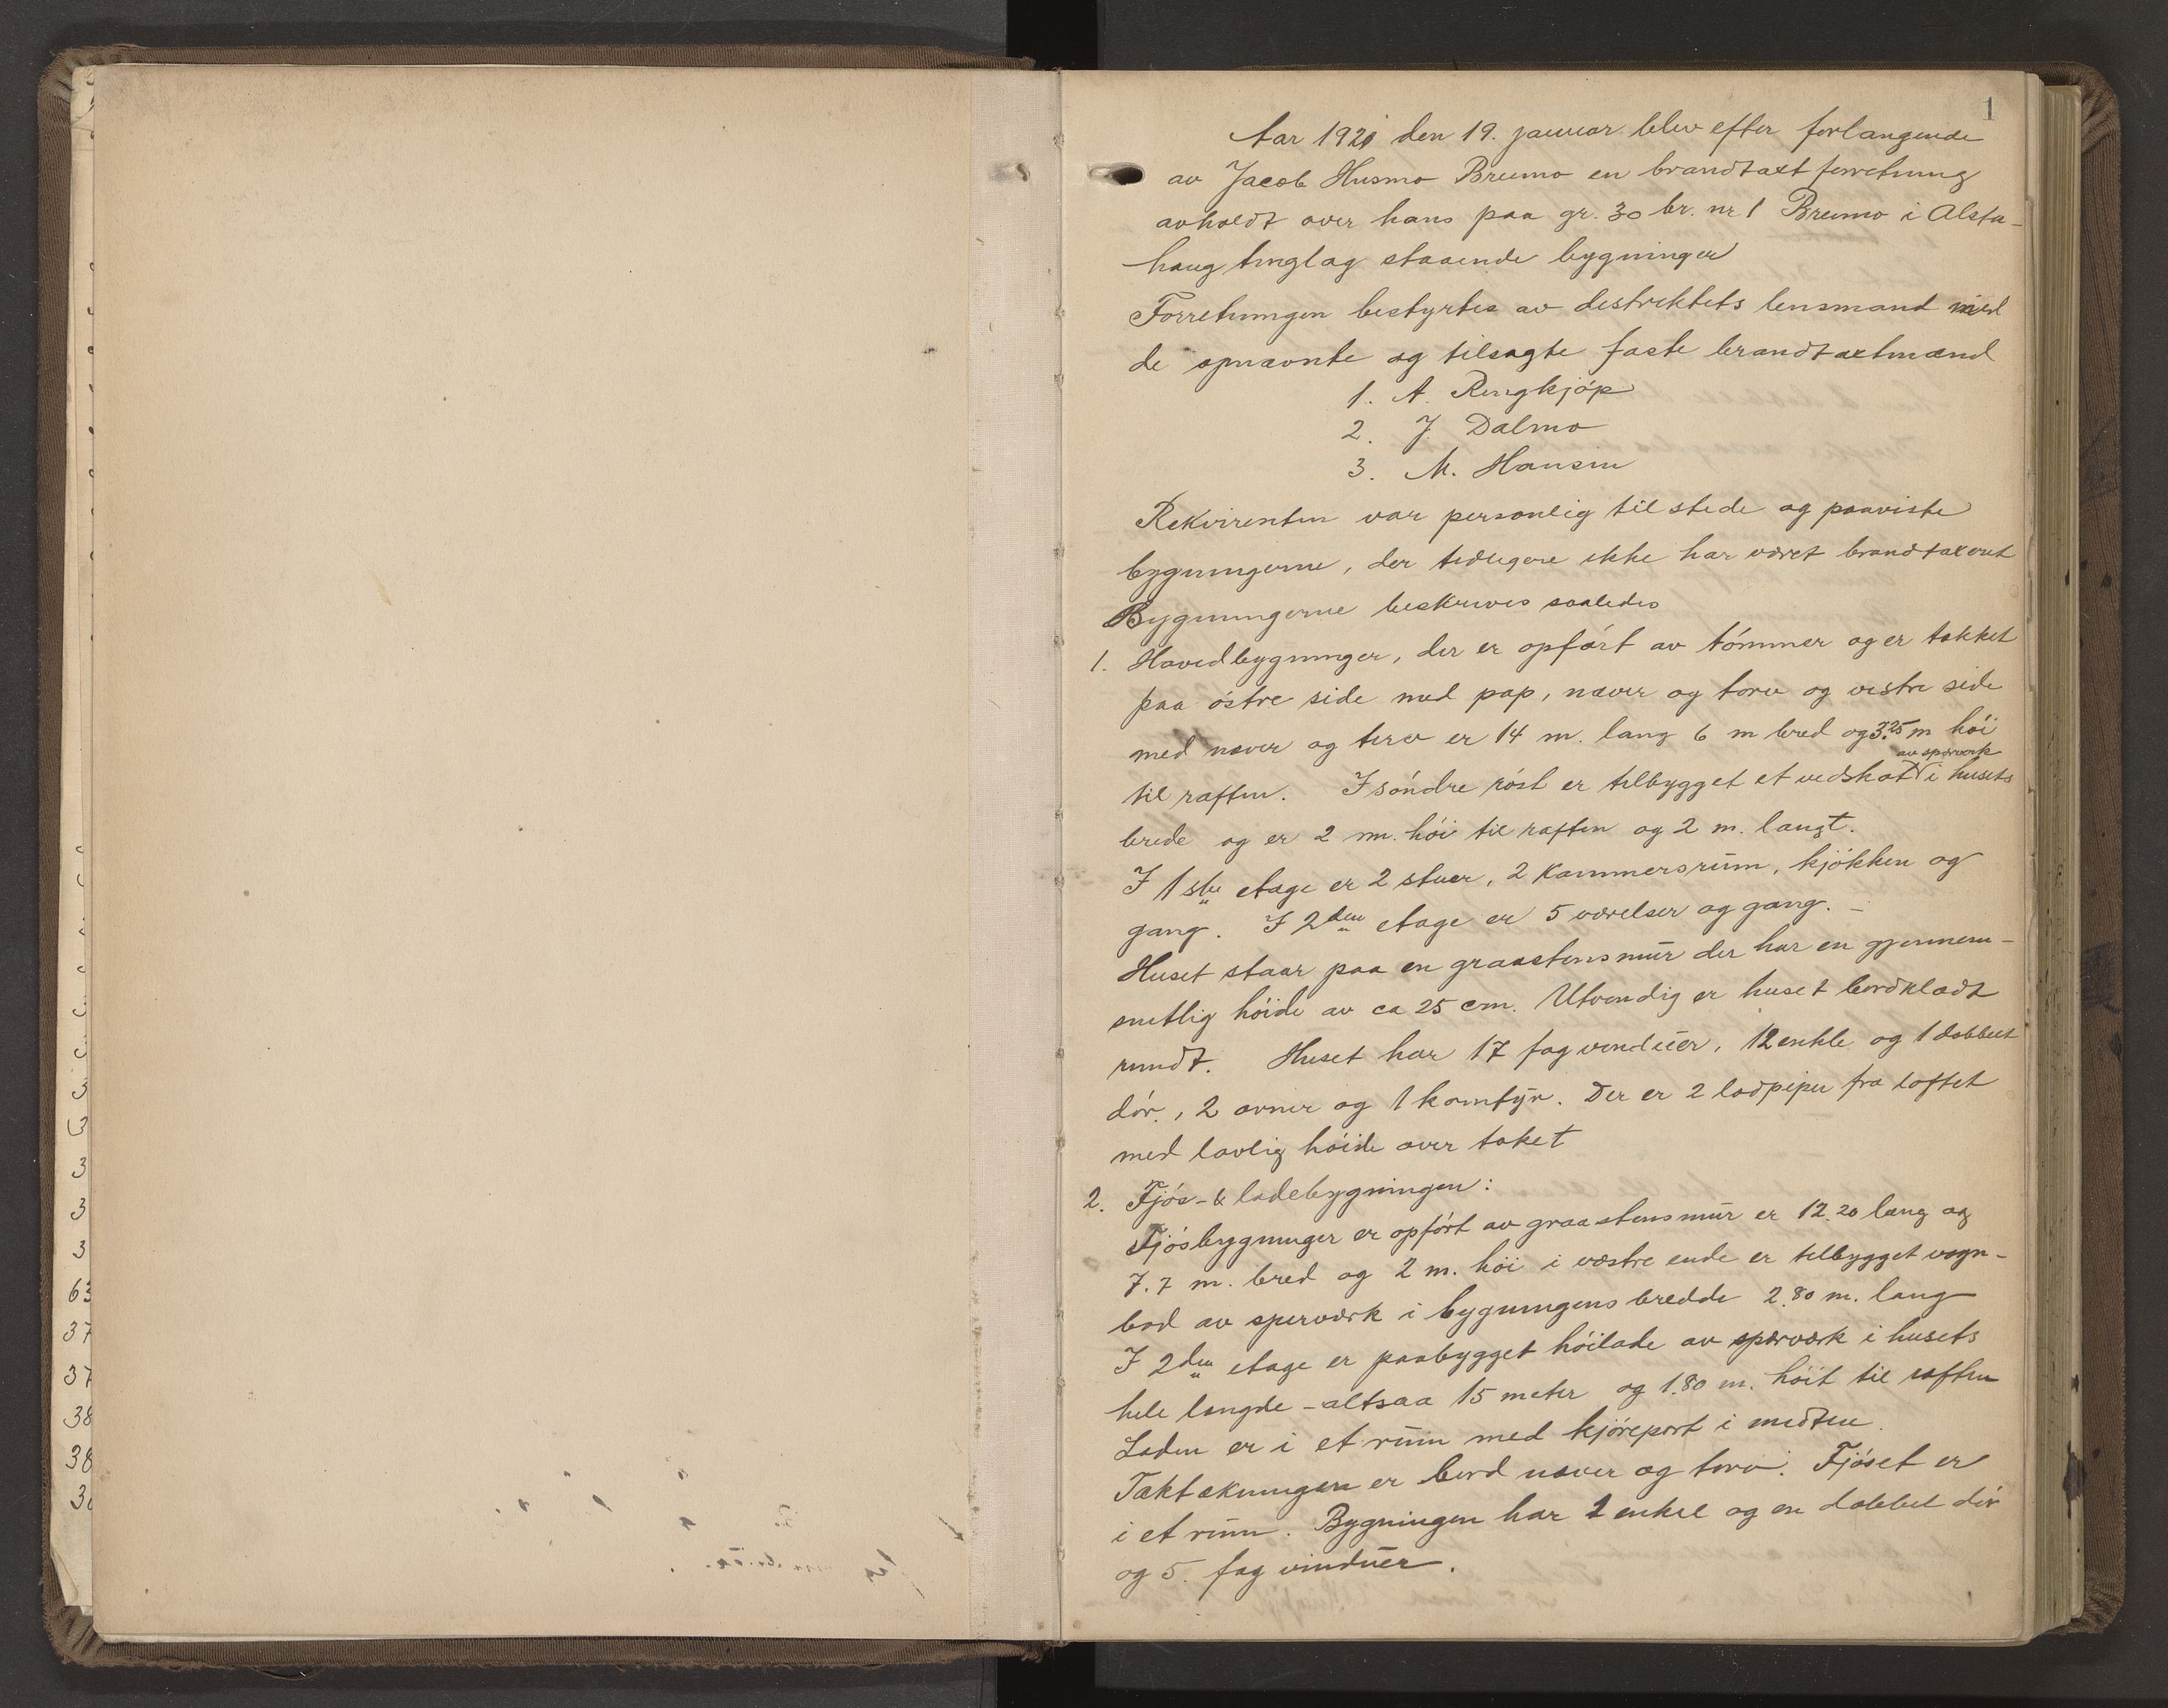 1
Aar 1920 den 19. januar blev efter forlangende
av Jacob Husmo Breimo en brandtaxt forretning
avholdt over hans paa gr. 30 br. nr 1 Breimo i Alsta-
haug tinglag staaende bygninger
Forretningen bestyrtes av destriktets lensmand med
de opnævnte og tilsagte faste brandtaxtmænd
1. A. Ringkjøp
2. J. Dalmo
3. M. Hansen
Rekvirenten var personlig tilstede og paaviste
bygningerne, der tidligere ikke har været brandtaxeret
Bygningerne beskrives saaledes
1. Hovedbygninger, der er opført av tømmer og er tækket
paa østre side med pap, næver og torv og vestre side
med næver og torv er 14 m. lang 6 m bred og 3.25 m høi
til raften. I søndre røst er tilbygget et vedskot av sperverk i husets
brede og er 2 m. høi til raften og 2 m. langt.
I 1ste etage er 2 stuer, 2 kammersrum, kjøkken og
gang. I 2den etage er 5 værelser og gang. -
Huset staar paa en graastensmur der har en gjennem-
snitlig høide av ca 25 cm. Utvendig er huset bordklædt
rundt. Huset har 17 fag vinduer, 12 enkle og 1 dobbelt
dør, 2 ovner og 1 komfyr. Der er 2 lodpiper fra loftet
med lovlig høide over taket
2. Fjøs- & ladebygningen:
Fjøsbygninger er opført av graastensmur er 12.20 lang og
7.7 m. bred og 2 m. høi i vestre ende er tilbygget vogn-
bod av sperværk i bygningens bredde 2.80 m. lang
I 2den etage er paabygget høilade av sperværk i husets
hele længde - altsaa 15 meter og 1.80 m. høit til raften
Laden er i et rum med kjøreport i midten.
Taktækningen er bord næver og torv. Fjøset er
i et rum. Bygningen har 2 enkel og en dobbelt dør
og 5. fag vinduer.
3
3
3
3
3
63
37
37
38
38